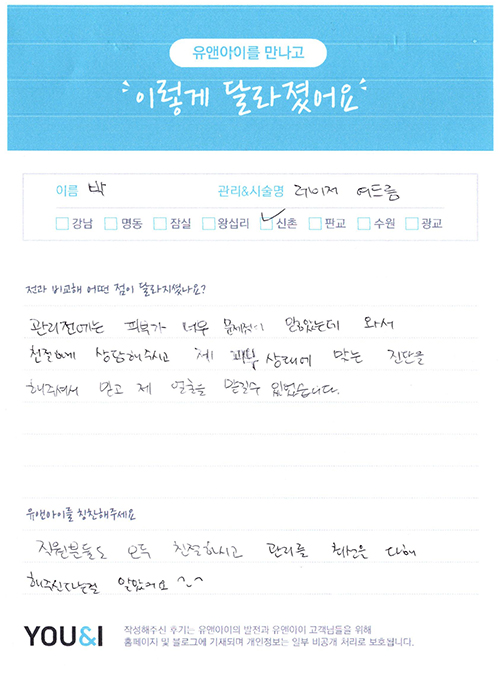 유앤아이를 만나고
이렇게 달라졌어요
이름 박 관리&시술명 레이저 여드름
강남 명동 잠실 왕십리 신촌 판교 수원 광교
전과 비교해 어떤 점이 달라지셨나요?
관리전에는 피부가 너무 문제점이 많았는데 와서
친절하게 상담해주시고 제 피부 상태에 맞는 진단을
해주셔서 믿고 제 얼굴을 맡길수 있었습니다.
유앤아이를 칭찬해주세요
직원분들도 모두 친절하시고 관리를 최선을 다해
해주신다는걸 알았어요 ^-^
YOU&I 작성해주신 후기는 유앤아이의 발전과 유앤아이 고객님들을 위해
홈페이지 및 블로그에 기재되며 개인정보는 일부 비공개 처리로 보호됩니다.